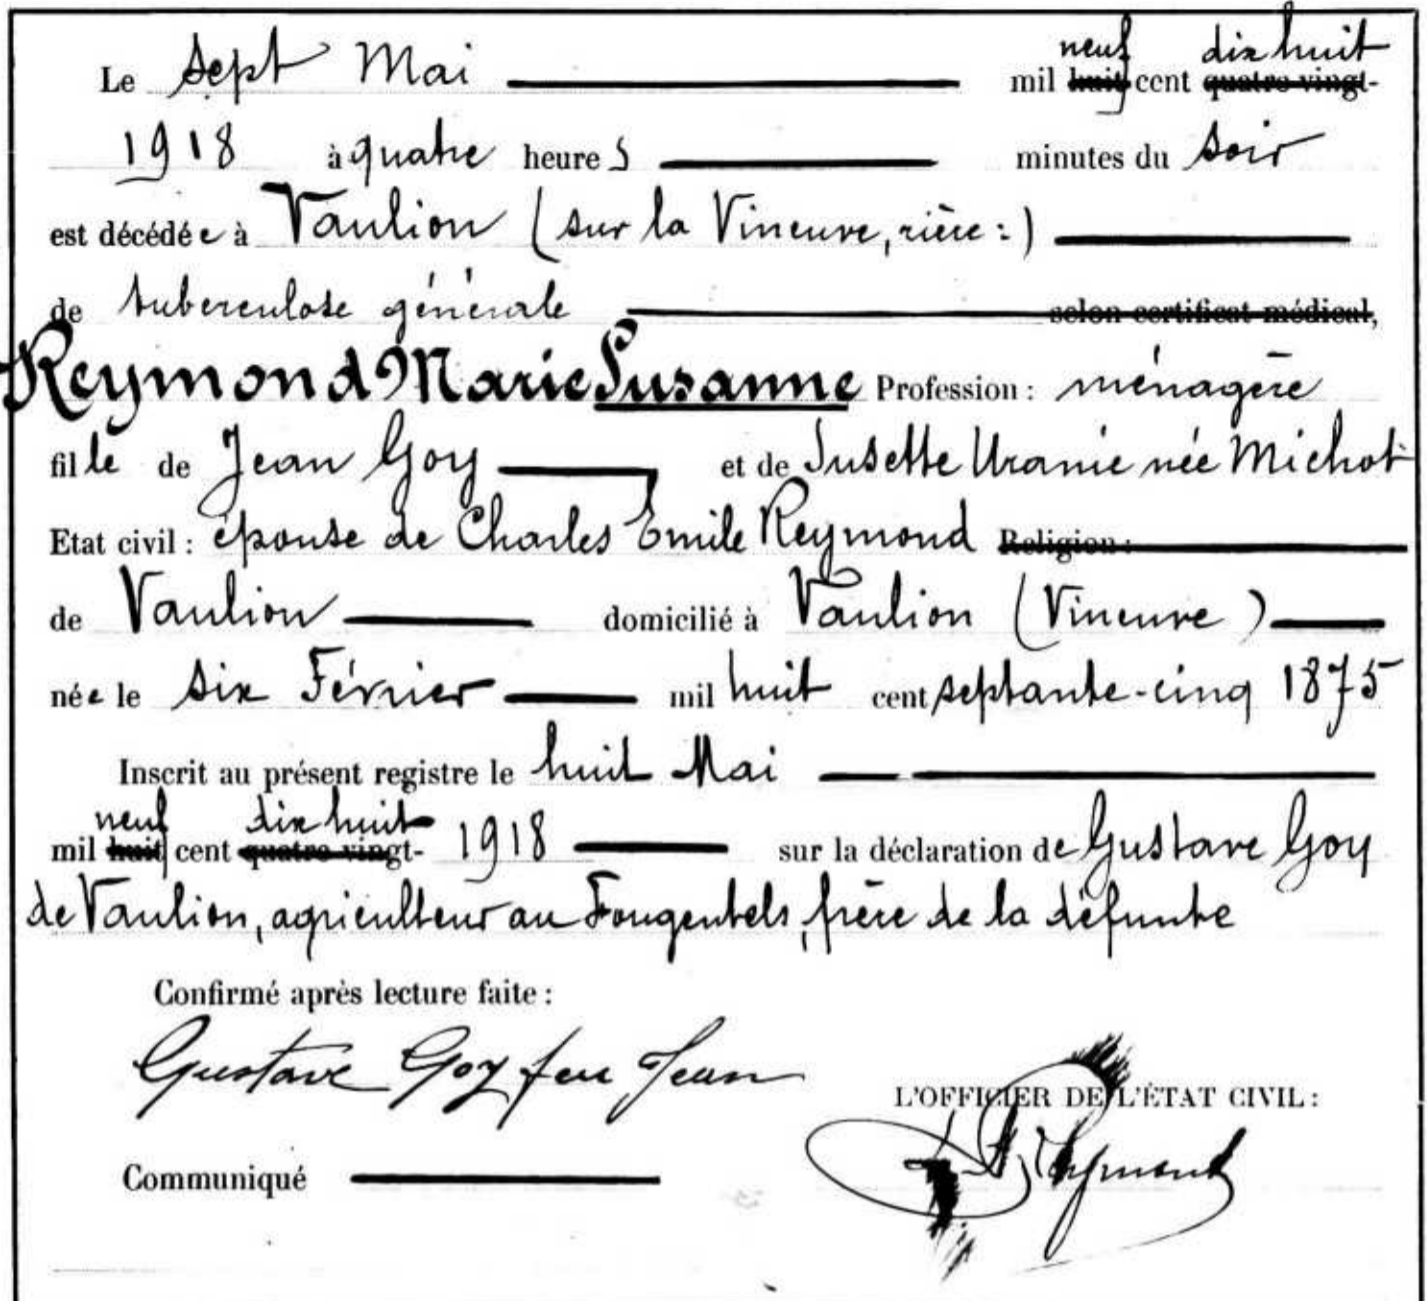 Le sept Mai mil neuf huit cent dix huit quatre vingt-
1918 à quatre heures minutes du soir
est décédée à Vaulion (sur la Vineuve, rière:)
de tuberculose générale selon certificat médical,
Reymond Marie Susanne Profession : ménagère
fille de Jean Goy et de Susette Uranie née Michot
Etat civil : épouse de Charles Emile Reymond Religion :
de Vaulion domicilié à Vaulion (Vineuve)
née le six Février mil huit cent septante-cinq 1875
Inscrit au présent registre le huit Mai
mil neuf huit cent dix huit quatre vingt- 1918 sur la déclaration de Gustave Goy
de Vaulion, agriculteur au frère de la défunte
Confirmé après lecture faite :
Gustave Goy feu Jean
L'OFFICIER DE L'ÉTAT CIVIL :
Reymond
Communiqué